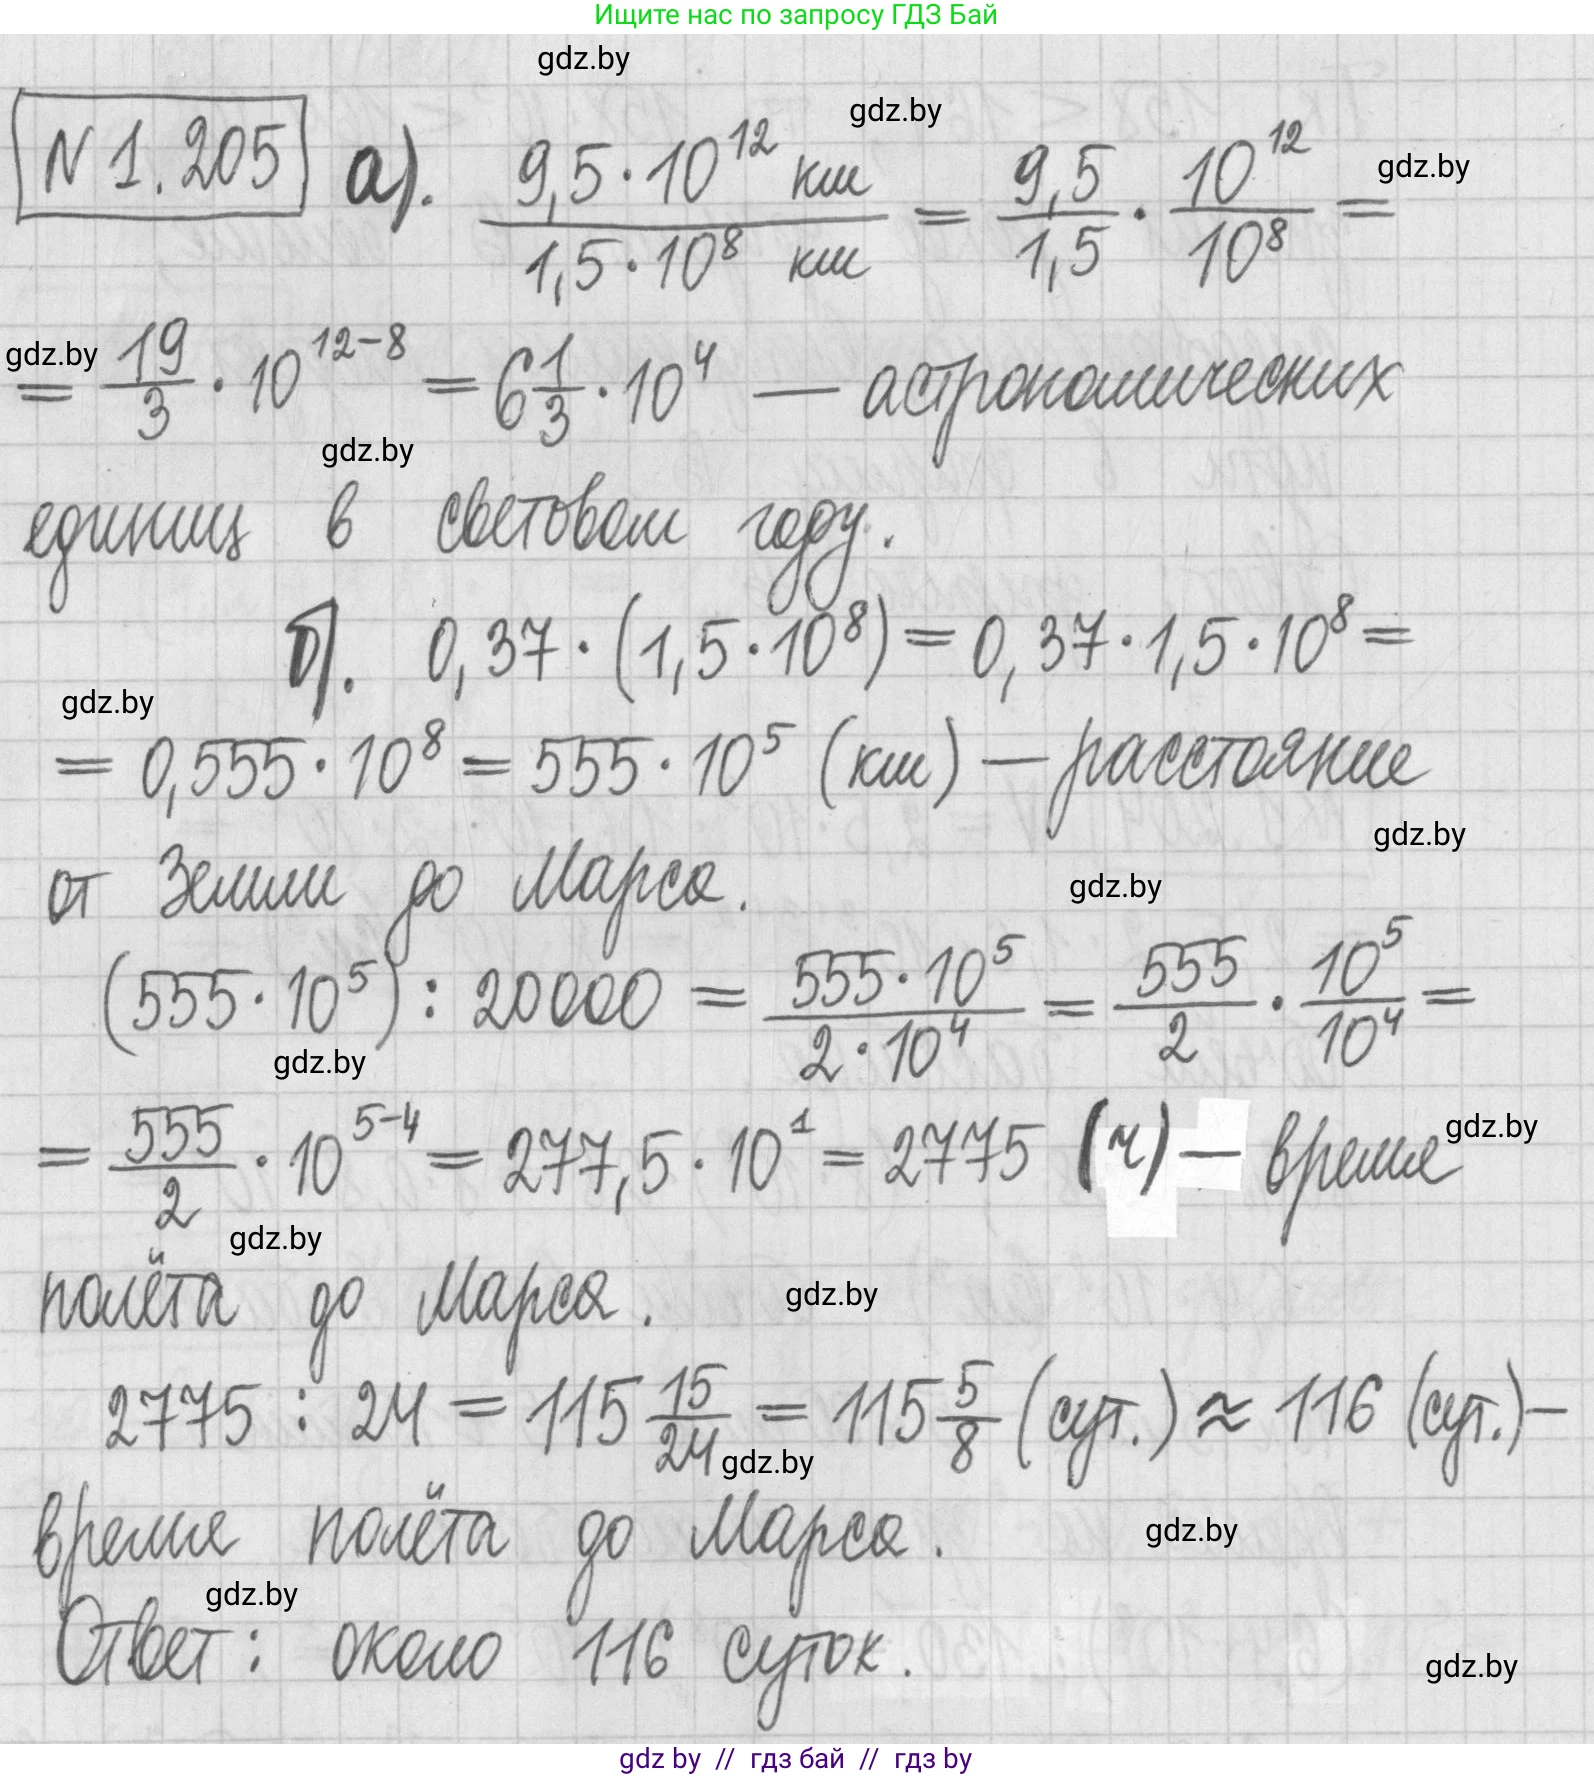 Ищите нас по запросу ГДЗ Бай
gdz.by
gdz.by
gdz.by
N 1.205 а). 9,5·10^12 км / 1,5·10^8 км = 9,5/1,5 · 10^12/10^8 =
gdz.by
= 19/3 · 10^(12-8) = 6 1/3 · 10^4 — астрономических
gdz.by
единиц в световом году.
б). 0,37·(1,5·10^8) = 0,37·1,5·10^8 =
gdz.by
= 0,555·10^8 = 555·10^5 (км) — расстояние
gdz.by
от Земли до Марса.
gdz.by
(555·10^5) : 20000 = 555·10^5 / 2·10^4 = 555/2 · 10^5/10^4 =
gdz.by
= 555/2 · 10^(5-4) = 277,5·10^1 = 2775 (ч) — время
gdz.by
gdz.by
полёта до Марса.
gdz.by
2775 : 24 = 115 15/24 = 115 5/8 (сут.) ≈ 116 (сут.) —
gdz.by
время полёта до Марса.
gdz.by
gdz.by
Ответ: около 116 суток.
gdz.by
gdz by // гдз бай // гдз by